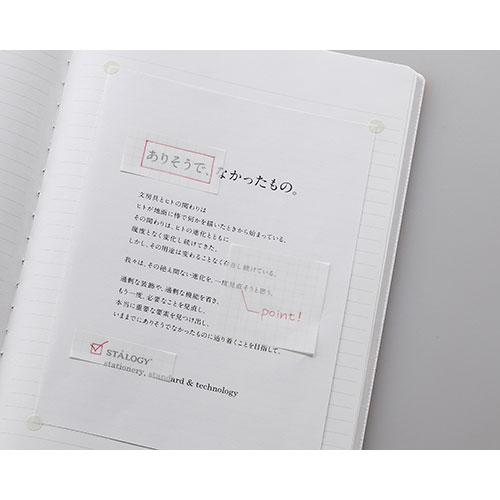 ありそうで、なかったもの。
文房具とヒトの関わりは
ヒトが地面に棒で何かを描いたときから始まっている。
その関わりは、ヒトの進化とともに
幾度となく変化し続けてきた。
しかし、その用途は変わることなく存在し続けている。
我々は、その絶え間ない進化を、一度見直そうと思う。
過剰な装飾や、過剰な機能を省き、
もう一度、必要なことを見直し、
本当に重要な要素を見つけ出し、
いままでにありそうでなかったものに辿り着くことを目指して。
point!
STÁLOGY
stationery, standard & technology